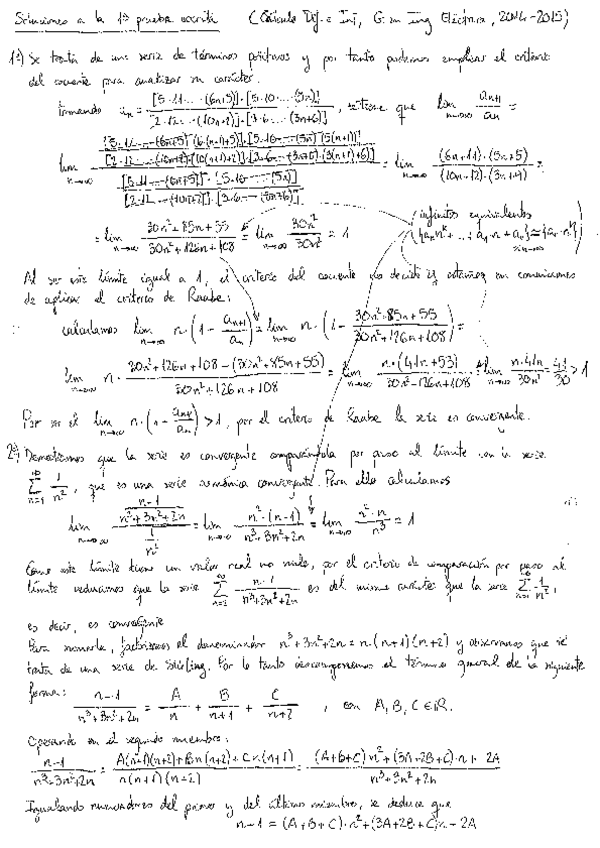 Soluciones a la 1ª prueba escrita (Cálculo Dif. e Int., G. en Ing. Eléctrica, 2014-2015)
1º) Se trata de una serie de términos positivos y por tanto podemos emplear el criterio
del cociente para analizar su carácter.
Tomando a_n = [5·11·…·(6n+5)]·[5·10·…·(5n)] / [2·12·…·(10n+2)]·[3·6·…·(3n+6)], se tiene que lim_{n→∞} a_{n+1}/a_n =
lim_{n→∞} [5·11·…·(6n+5)(6(n+1)+5)]·[5·10·…·(5n)(5(n+1))] / [2·12·…·(10n+2)(10(n+1)+2)]·[3·6·…·(3n+6)(3(n+1)+6)] / [5·11·…·(6n+5)]·[5·10·…·(5n)] / [2·12·…·(10n+2)]·[3·6·…·(3n+6)] = lim_{n→∞} (6n+11)·(5n+5) / (10n+12)·(3n+9) =
= lim_{n→∞} 30n²+85n+55 / 30n²+126n+108 = lim_{n→∞} 30n²/30n² = 1 (infinitos equivalentes {a_k n^k + … + a_1·n + a_0} ≈ {a_k·n^k} si n→∞)
Al ser este límite igual a 1, el criterio del cociente no decide y estamos en condiciones
de aplicar el criterio de Raabe:
calculamos lim_{n→∞} n·(1 - a_{n+1}/a_n) = lim_{n→∞} n·(1 - 30n²+85n+55 / 30n²+126n+108) =
lim_{n→∞} n· 30n²+126n+108-(30n²+85n+55) / 30n²+126n+108 = lim_{n→∞} n·(41n+53) / 30n²+126n+108 = lim_{n→∞} n·41n / 30n² = 41/30 > 1
Por ser el lim_{n→∞} n·(1 - a_{n+1}/a_n) > 1, por el criterio de Raabe la serie es convergente.
2º) Demostramos que la serie es convergente comparándola por paso al límite con la serie
∑_{n=1}^{+∞} 1/n², que es una serie armónica convergente. Para ello calculamos
lim_{n→∞} (n-1 / n³+3n²+2n) / (1/n²) = lim_{n→∞} n²·(n-1) / n³+3n²+2n = lim_{n→∞} n²·n / n³ = 1
Como este límite tiene un valor real no nulo, por el criterio de comparación por paso al
límite deducimos que la serie ∑_{n=2}^{∞} n-1 / n³+3n²+2n es del mismo carácter que la serie ∑_{n=1}^{∞} 1/n²,
es decir, es convergente
Para sumarla, factorizamos el denominador n³+3n²+2n = n·(n+1)(n+2) y observamos que se
trata de una serie de Stirling. Por lo tanto descomponemos el término general de la siguiente
forma: n-1 / n³+3n²+2n = A/n + B/n+1 + C/n+2, con A, B, C ∈ ℝ.
Operando en el segundo miembro:
n-1 / n³+3n²+2n = A(n+1)(n+2)+Bn(n+2)+Cn(n+1) / n(n+1)(n+2) = (A+B+C)n²+(3A+2B+C)·n+2A / n³+3n²+2n
Igualando numeradores del primer y del último miembro, se deduce que
n-1 = (A+B+C)·n²+(3A+2B+C)n+2A